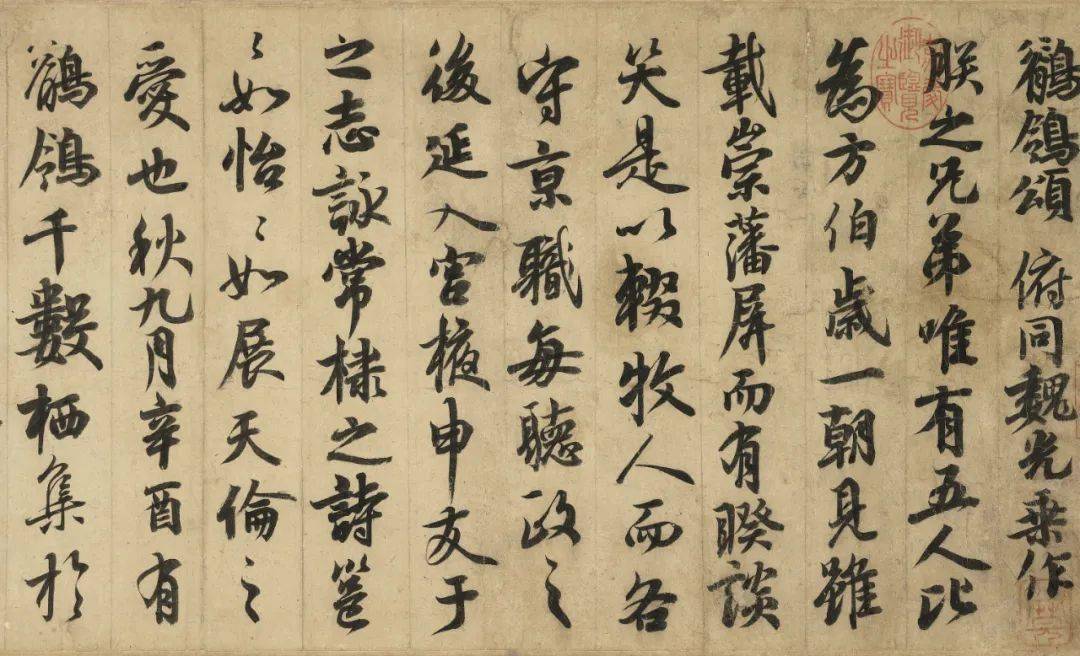 鶺鴒頌 俯同魏光乘作
朕之兄弟唯有五人比
為方伯歲一朝見雖
載崇藩屏而有暌談
笑是以輟牧人而各
守京職每聽政之
後延入宮掖申友于
之志詠常棣之詩邕
〻如怡〻如展天倫之
愛也秋九月辛酉有
鶺鴒千數栖集於
嘉慶御覽之寶